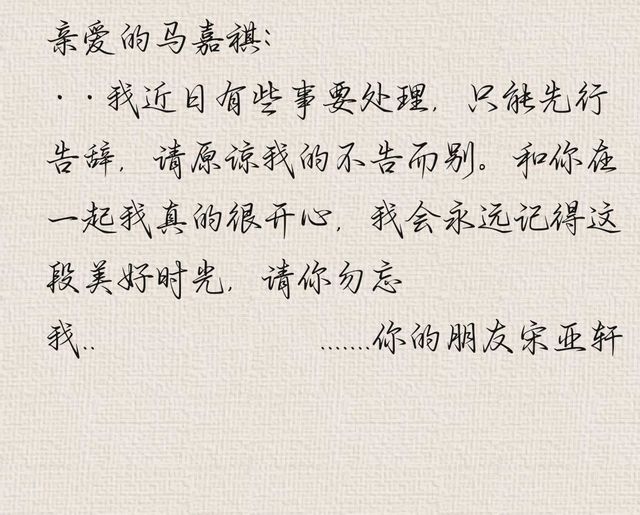 亲爱的马嘉祺：
··我近日有些事要处理，只能先行
告辞，请原谅我的不告而别。和你在
一起我真的很开心，我会永远记得这
段美好时光，请你勿忘
我.. .......你的朋友宋亚轩